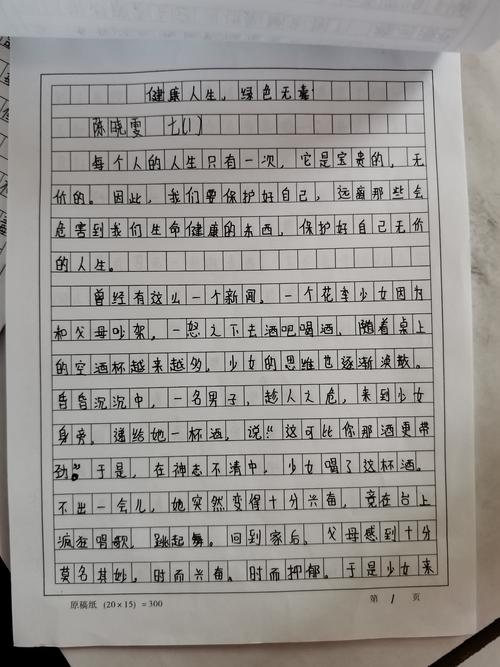 健康人生，绿色无毒
陈晓雯 七(1)
每个人的人生只有一次，它是宝贵的，无
价的。因此，我们要保护好自己，远离那些会
危害到我们生命健康的东西，保护好自己无价
的人生。
曾经有这么一个新闻，一个花季少女因为
和父母吵架，一怒之下去酒吧喝酒，随着桌上
的空酒杯越来越多，少女的思维也逐渐涣散。
昏昏沉沉中，一名男子，趁人之危，来到少女
身旁，递给她一杯酒，说："这可比你那酒更带
劲"。于是，在神志不清中，少女喝了这杯酒。
不出一会儿，她突然变得十分兴奋，竟在台上
疯狂唱歌，跳起舞。回到家后，父母感到十分
莫名其妙，时而兴奋，时而抑郁。于是少女来
原稿纸 (20×15)=300 第 1 页